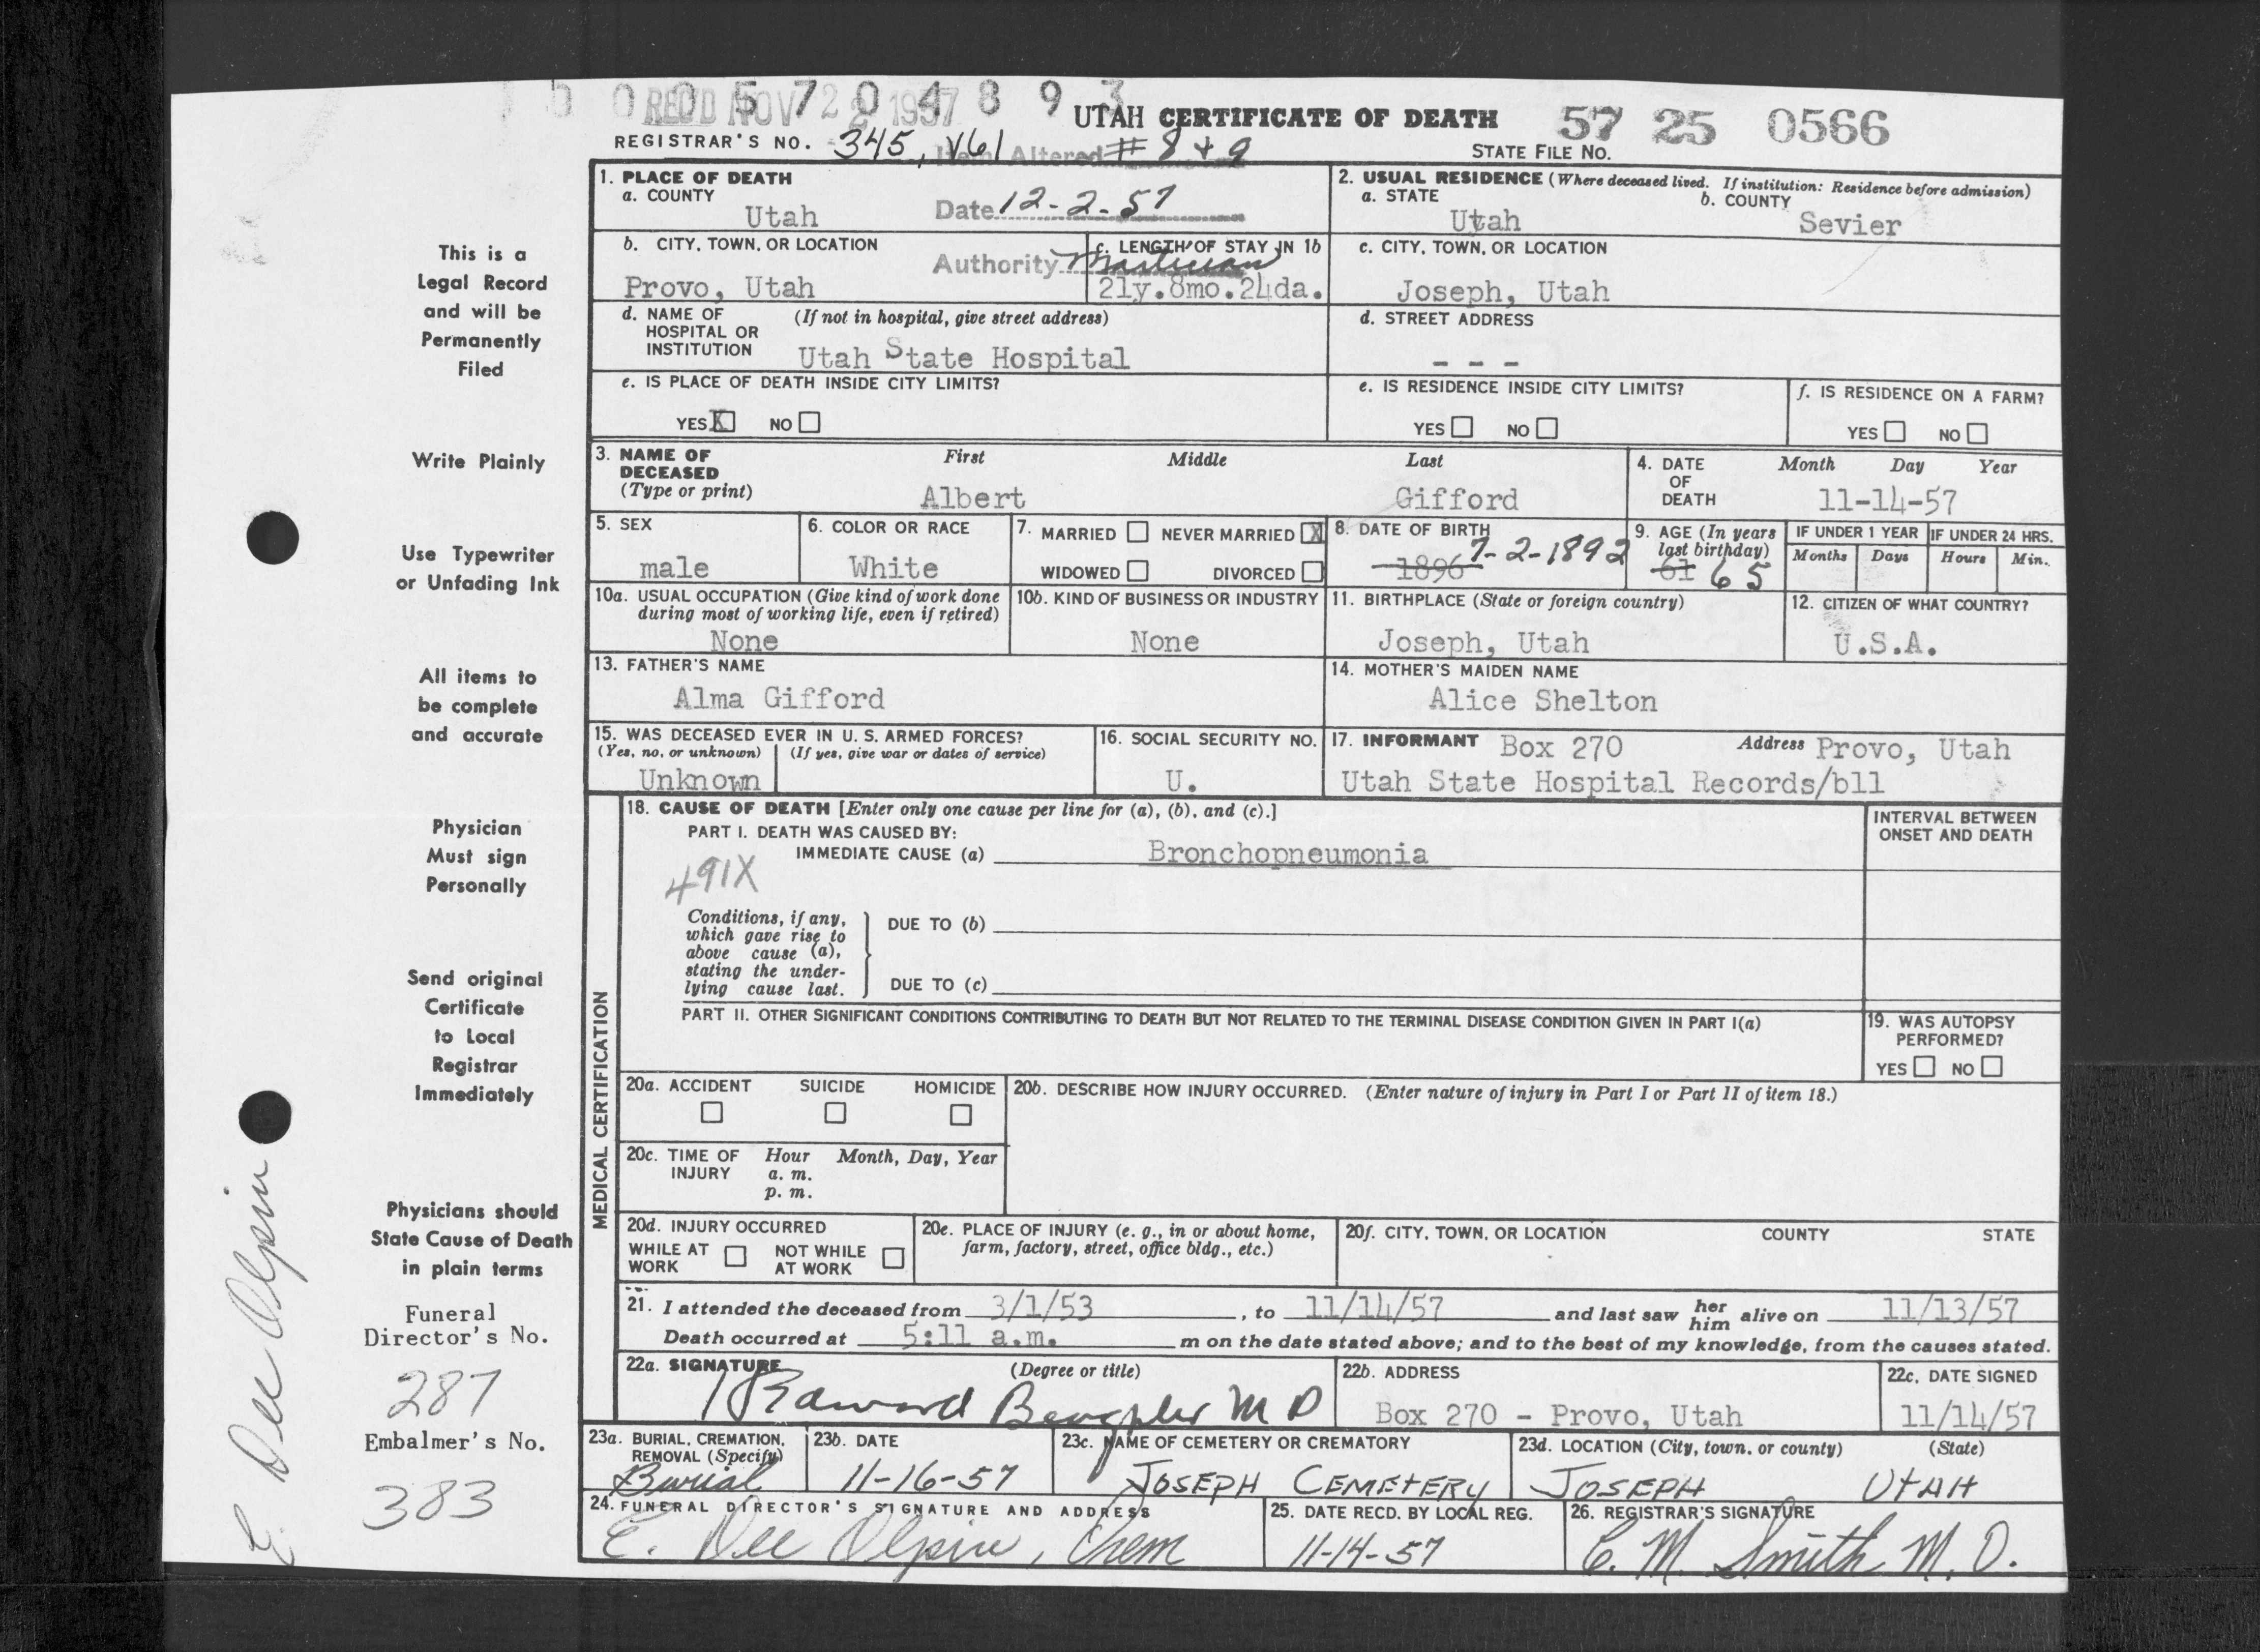 REC'D NOV 22 1957
UTAH CERTIFICATE OF DEATH 57 25 0566
REGISTRAR'S NO. 345, V61 Item Altered # 8 + 9 STATE FILE No.
1. PLACE OF DEATH
a. COUNTY Utah Date 12-2-57
2. USUAL RESIDENCE (Where deceased lived. If institution: Residence before admission)
a. STATE Utah b. COUNTY Sevier
b. CITY, TOWN, OR LOCATION Provo, Utah Authority
c. LENGTH OF STAY IN 1b 21y.8mo.24da.
c. CITY, TOWN, OR LOCATION Joseph, Utah
d. NAME OF HOSPITAL OR INSTITUTION (If not in hospital, give street address)
Utah State Hospital
d. STREET ADDRESS - - -
e. IS PLACE OF DEATH INSIDE CITY LIMITS?
YES X NO
e. IS RESIDENCE INSIDE CITY LIMITS?
YES NO
f. IS RESIDENCE ON A FARM?
YES NO
3. NAME OF DECEASED (Type or print) First Middle Last
Albert Gifford
4. DATE OF DEATH Month Day Year
11-14-57
5. SEX male
6. COLOR OR RACE White
7. MARRIED NEVER MARRIED X
WIDOWED DIVORCED
8. DATE OF BIRTH 1896 7-2-1892
9. AGE (In years last birthday) 61 65
IF UNDER 1 YEAR Months Days
IF UNDER 24 HRS. Hours Min.
10a. USUAL OCCUPATION (Give kind of work done during most of working life, even if retired)
None
10b. KIND OF BUSINESS OR INDUSTRY
None
11. BIRTHPLACE (State or foreign country)
Joseph, Utah
12. CITIZEN OF WHAT COUNTRY?
U.S.A.
13. FATHER'S NAME
Alma Gifford
14. MOTHER'S MAIDEN NAME
Alice Shelton
15. WAS DECEASED EVER IN U. S. ARMED FORCES?
(Yes, no, or unknown) (If yes, give war or dates of service)
Unknown
16. SOCIAL SECURITY NO.
U.
17. INFORMANT Box 270 Address Provo, Utah
Utah State Hospital Records/bll
MEDICAL CERTIFICATION
18. CAUSE OF DEATH [Enter only one cause per line for (a), (b), and (c).]
PART I. DEATH WAS CAUSED BY:
IMMEDIATE CAUSE (a) Bronchopneumonia
491X
INTERVAL BETWEEN ONSET AND DEATH
Conditions, if any, which gave rise to above cause (a), stating the underlying cause last.
DUE TO (b)
DUE TO (c)
PART II. OTHER SIGNIFICANT CONDITIONS CONTRIBUTING TO DEATH BUT NOT RELATED TO THE TERMINAL DISEASE CONDITION GIVEN IN PART I(a)
19. WAS AUTOPSY PERFORMED?
YES NO
20a. ACCIDENT SUICIDE HOMICIDE
20b. DESCRIBE HOW INJURY OCCURRED. (Enter nature of injury in Part I or Part II of item 18.)
20c. TIME OF INJURY Hour Month, Day, Year
a. m.
p. m.
20d. INJURY OCCURRED
WHILE AT WORK NOT WHILE AT WORK
20e. PLACE OF INJURY (e. g., in or about home, farm, factory, street, office bldg., etc.)
20f. CITY, TOWN, OR LOCATION COUNTY STATE
21. I attended the deceased from 3/1/53, to 11/14/57 and last saw her him alive on 11/13/57
Death occurred at 5:11 a.m. m on the date stated above; and to the best of my knowledge, from the causes stated.
22a. SIGNATURE (Degree or title)
Edward M D
22b. ADDRESS
Box 270 - Provo, Utah
22c. DATE SIGNED
11/14/57
23a. BURIAL, CREMATION, REMOVAL (Specify)
Burial
23b. DATE
11-16-57
23c. NAME OF CEMETERY OR CREMATORY
JOSEPH CEMETERY
23d. LOCATION (City, town, or county) (State)
JOSEPH UTAH
24. FUNERAL DIRECTOR'S SIGNATURE AND ADDRESS
E. Dee Olpin,
25. DATE RECD. BY LOCAL REG.
11-14-57
26. REGISTRAR'S SIGNATURE
C. M. Smith M. D.
This is a
Legal Record
and will be
Permanently
Filed
Write Plainly
Use Typewriter
or Unfading Ink
All items to
be complete
and accurate
Physician
Must sign
Personally
Send original
Certificate
to Local
Registrar
Immediately
Physicians should
State Cause of Death
in plain terms
Funeral
Director's No.
287
Embalmer's No.
383
E. Dee Olpin